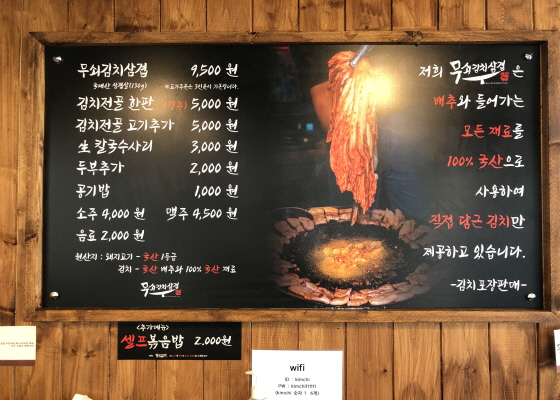 무쇠김치삼겹 9,500 원
국내산 생삼겹살(150g) ※고기주문은 3인분이 기본입니다.
김치전골 한판 (기본) 5,000 원
김치전골 고기추가 5,000 원
生 칼국수사리 3,000 원
두부추가 2,000 원
공기밥 1,000 원
소주 4,000 원 맥주 4,500 원
음료 2,000 원
원산지 : 돼지고기 - 국산 1등급
김치 - 국산 배추와 100% 국산 재료
무쇠김치삼겹
저희 무쇠김치삼겹 은
배추와 들어가는
모든 재료를
100% 국산으로
사용하여
직접 담근 김치만
제공하고 있습니다.
-김치포장판매-
<추가메뉴>
셀프볶음밥 2,000원
wifi
ID : kimchi
PW : kimchi11111
(kimchi 숫자 1 6개)